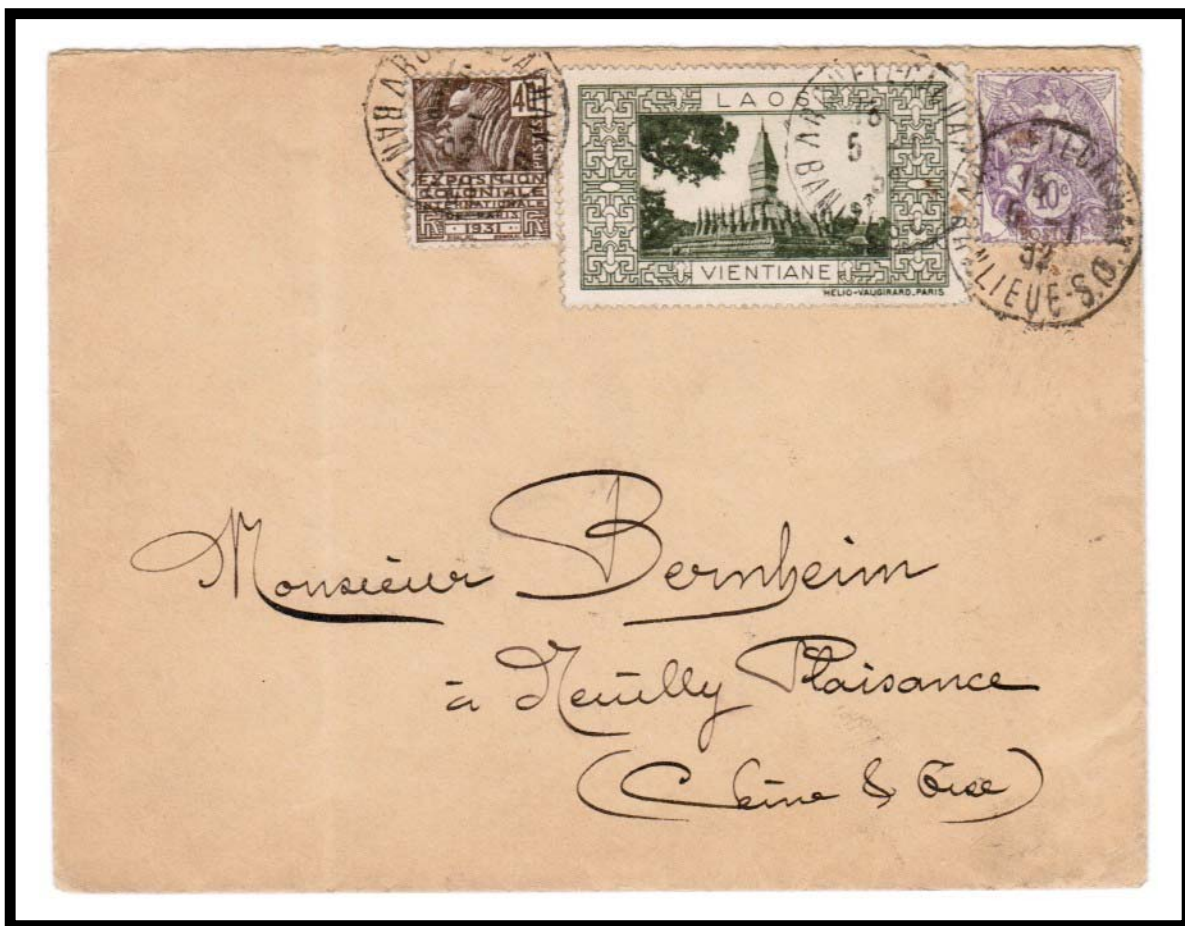 40c
POSTES
EXPOSITION
COLONIALE
INTERNATIONALE
DE PARIS
1931
LAOS
VIENTIANE
HELIO-VAUGIRARD, PARIS
10c
POSTES
16
5 -
BAN
15
32
BANLIEUE-S.O.
Monsieur Bernheim
à Neuilly Plaisance
(Seine & Oise)